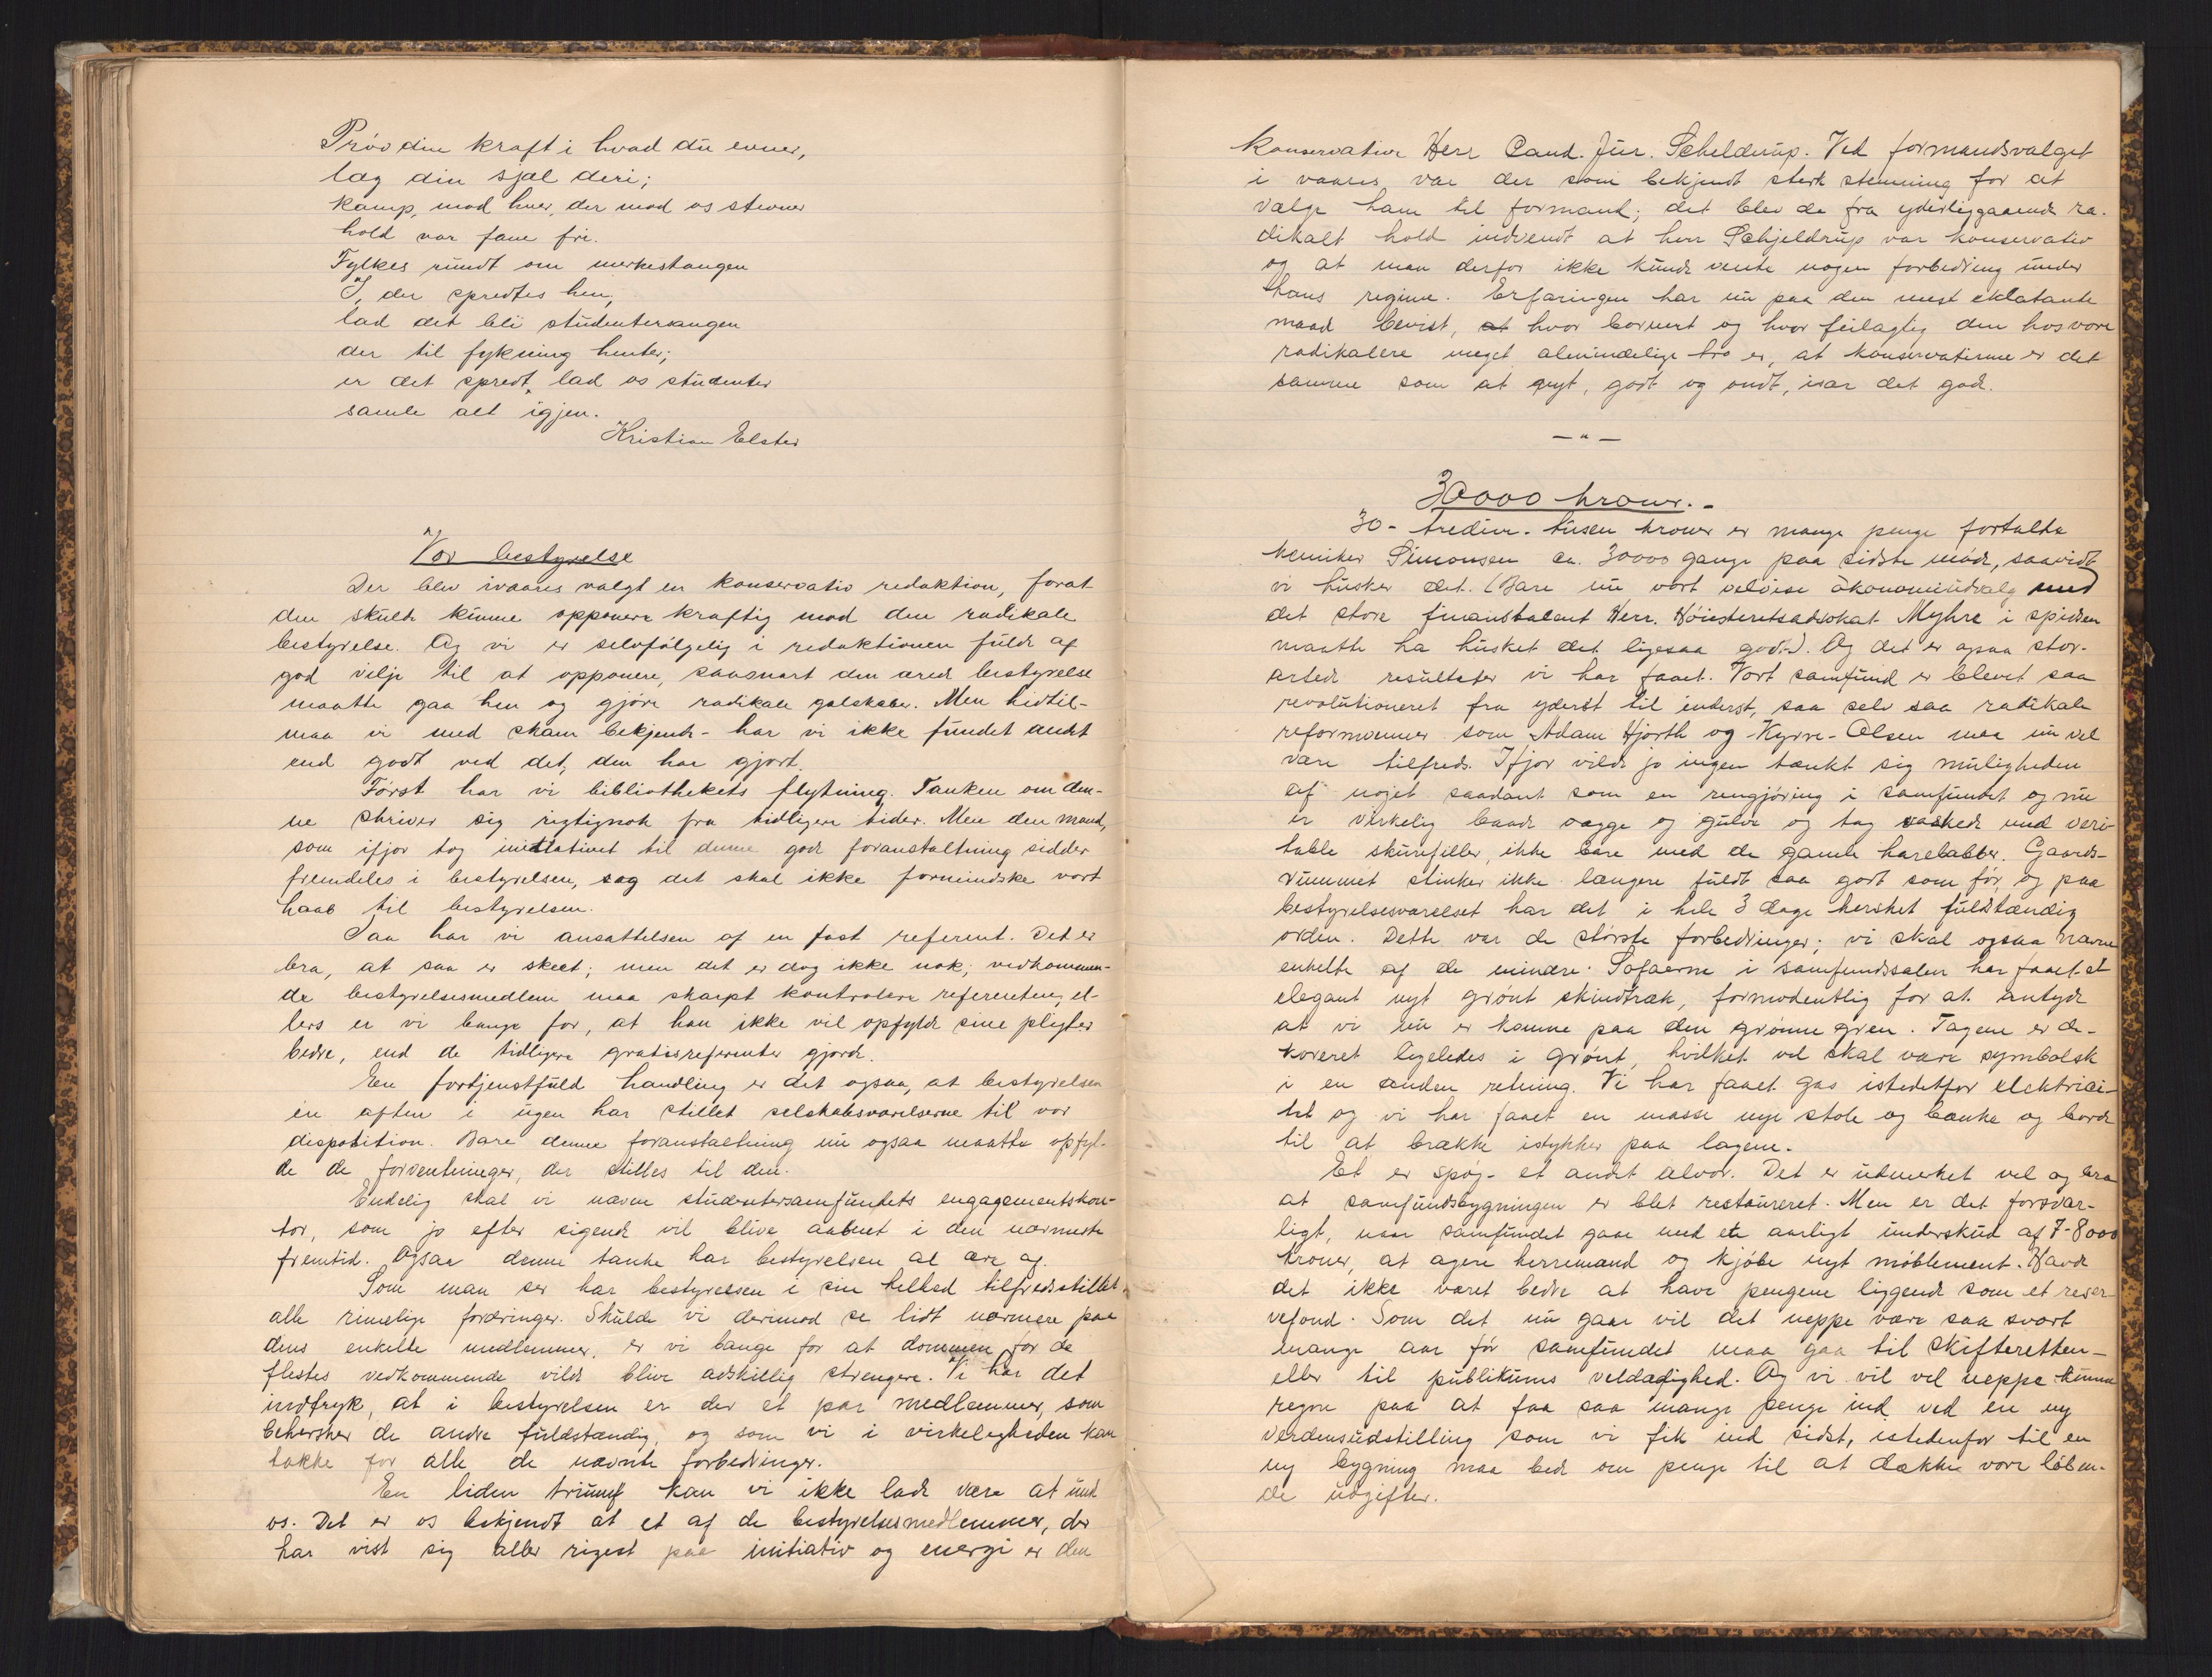 Prøv din kraft i hvad du evner,
læg din sjæl deri;
kamp, mod hver, der mod os stevner
hold vor fane fri.
Fylkes rundt om merkestangen
I, der spredtes hen,
lad det bli studentersangen
der til fylkning henter;
er det spredt, lad os studenter
samle alt igjen.
Kristian Elster
Vor bestyrelse
Der blev ivaares valgt en konservativ redaktion, forat
den skulde kunne opponere kraftig mod den radikale
bestyrelse. Og vi er selvfølgelig i redaktionen fulde af
god vilje til at opponere, saasnart den ærede bestyrelse
maatte gaa hen og gjøre radikale galskaber. Men hidtil-
maa vi med skam bekjende - har vi ikke fundet andet
end godt ved det, den har gjort.
Først har vi bibliothekets flytning. Tanken om den-
ne skriver sig rigtignok fra tidligere tider. Men den mand,
som ifjor tog initiativet til denne gode foranstaltning sidder
fremdeles i bestyrelsen, og det skal ikke formindske vort
haab til bestyrelsen.
Saa har vi ansættelsen af en fast referent. Det er
bra, at saa er skeet; men det er dog ikke nok; vedkommen-
de bestyrelsesmedlem maa skarpt kontrolere referenten, el-
lers er vi bange for, at han ikke vil opfylde sine pligter
bedre, end de tidligere gratisreferenter gjorde.
En fortjenstfuld handling er det ogsaa, at bestyrelsen
en aften i ugen har stillet selskabsværelserne til vor
disposition. Bare denne foranstaltning nu ogsaa maatte opfyl-
de de forventninger, der stilles til den.
Endelig skal vi nævne studentersamfundets engagementskon-
tor, som jo efter sigende vil blive aabnet i den nærmeste
fremtid. Ogsaa denne tanke har bestyrelsen al ære af.
Som man ser har bestyrelsen i sin helhed tilfredsstillet
alle rimelige fordringer. Skulde vi derimod se lidt nærmere paa
dens enkelte medlemmer, er vi bange for at dommen for de
flestes vedkommende vilde blive adskillig strengere. Vi har det
indtryk, at i bestyrelsen er der et par medlemmer, som
behersker de andre fuldstændig, og som vi i virkeligheden kan
takke for alle de nævnte forbedringer.
En liden triumf kan vi ikke lade være at unde
os. Det er os bekjendt at et af de bestyrelsesmedlemmer, der
har vist sig aller rigest paa initiativ og energi er den
konservative Herr Cand. Jur. Schelderup. Ved formandsvalget
i vaares var der som bekjendt sterk stemning for at
vælge ham til formand; det blev da fra yderliggaaende ra-
dikalt hold indvendt at herr Schjelderup var konservativ
og at man derfor ikke kunde vente nogen forbedring under
hans regime. Erfaringen har nu paa den mest eklatante
maade bevist, at hvor bornert og hvor feilagtig den hos vore
radikalere meget almindelige tro er, at konservatisme er det
samme som at sky nyt, godt og ondt, især det gode.
— " —
30000 kroner. -
30 - tredive - tusen kroner er mange penge fortalte
kemiker Simonsen ca. 30000 gange paa sidste møde, saavidt
vi husker det. (Bare nu vort velvise økonomiudvalg med
det store finanstalent Herr. Høiesteretsadvokat Myhre i spidsen
maatte ha husket det ligesaa godt). Og det er ogsaa stor-
artede resultater vi har faaet. Vort samfund er blevet saa
revolutioneret fra yderst til inderst, saa selv saa radikale
reformvenner som Adam Hjorth og Kyrre-Olsen maa nu vel
være tilfreds. Ifjor vilde jo ingen tænkt sig muligheden
af noget saadant som en rengjøring i samfundet og nu
er virkelig baade vægge og gulve og tag vasked med veri-
table skurefiller, ikke bare med de gamle harelabber. Gaards-
rummet stinker ikke længere fuldt saa godt som før, og paa
bestyrelsesværelset har det i hele 3 dage hersket fuldstændig
orden. Dette var de største forbedringer; vi skal ogsaa nævne
enkelte af de mindre. Sofaerne i samfundssalen har faaet et
elegant nyt grønt skindtræk, formodentlig for at antyde
at vi nu er komne paa den grønne gren. Tagene er de-
koreret ligeledes i grønt, hvilket vel skal være symbolsk
i en anden retning. Vi har faaet gas istedetfor elektrici-
tet og vi har faaet en masse nye stole og bænke og borde
til at brække istykker paa lagene.
Et er spøg - et andet alvor. Det er udmerket vel og bra
at samfundsbygningen er blet restaureret. Men er det forsvar-
ligt, naar samfundet gaar med et aarligt underskud af 7-8000
kroner, at agere herremand og kjøbe nyt møblement. Havde
det ikke været bedre at have pengene liggende som et reser-
vefond. Som det nu gaar vil det neppe være saa svært
mange aar før samfundet maa gaa til skifteretten -
eller til publikums veldædighed. Og vi vil vel neppe kunne
regne paa at faa saa mange penge ind ved en ny
verdensudstilling som vi fik ind sidst, istedenfor til en
ny bygning maa bede om penge til at dække vore løben-
de udgifter.